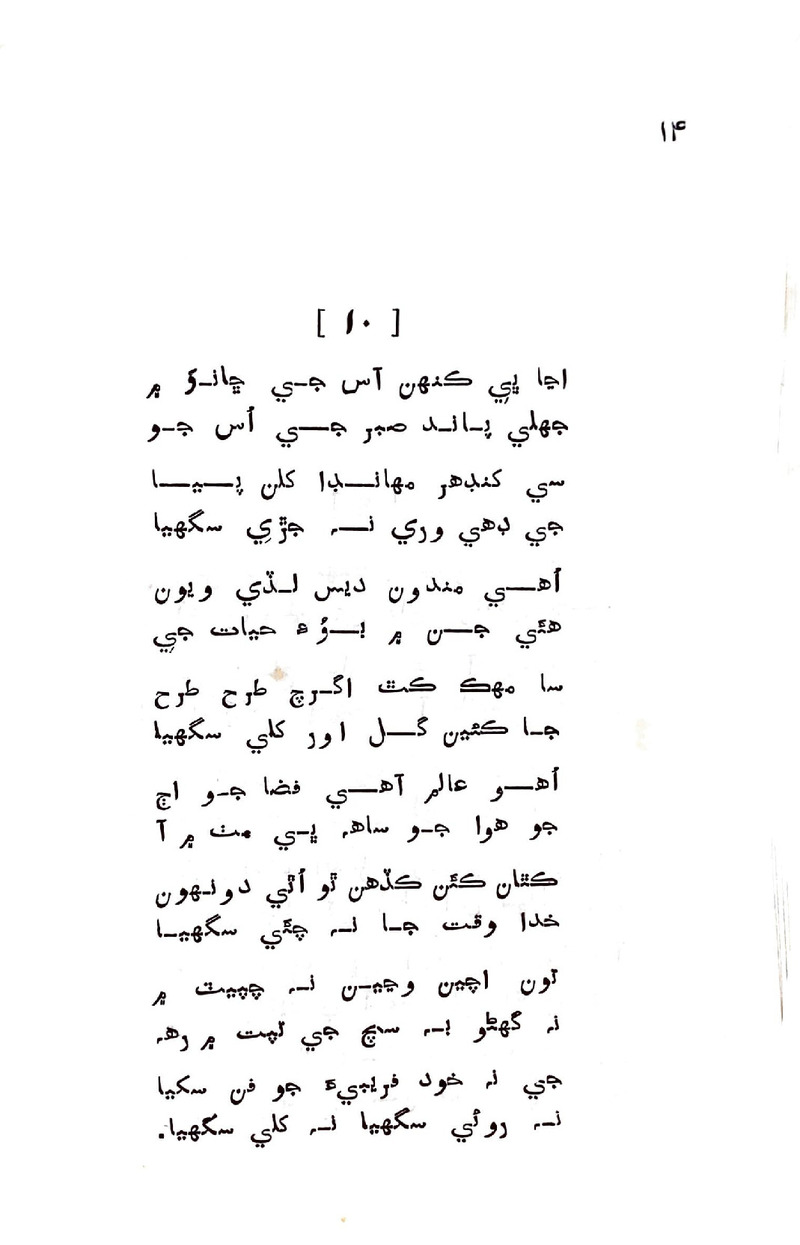 ۱۴
[ ۱۰ ]
اڃا ڀي ڪنهن آس جي ڇانوَ ۾
جهلي پاند صبر جي اُس جو
سي کنڊهر مهانڊا کلن پيا
جي ڊهي وري نہ جڙي سگهيا
اُهي مندون ديس لڏي ويون
هئي جن ۾ بوُءِ حيات جي
سا مهڪ ڪٿ اگرچ طرح طرح
جا ڪئين گل اور کلي سگهيا
اُهو عالم آهي فضا جو اڄ
جو هوا جو ساهہ ڀي مٺ ۾ آ
ڪٿان ڪئن ڪڏهن ٿو اُٿي دونهون
خدا وقت جا نہ چئي سگهيا
تون اچين وڃين نہ چپيٽ ۾
نہ گهڻو بہ سچ جي لپت ۾ رهہ
جي نہ خود فريبيءَ جو فن سکيا
نہ روئي سگهيا نہ کلي سگهيا.